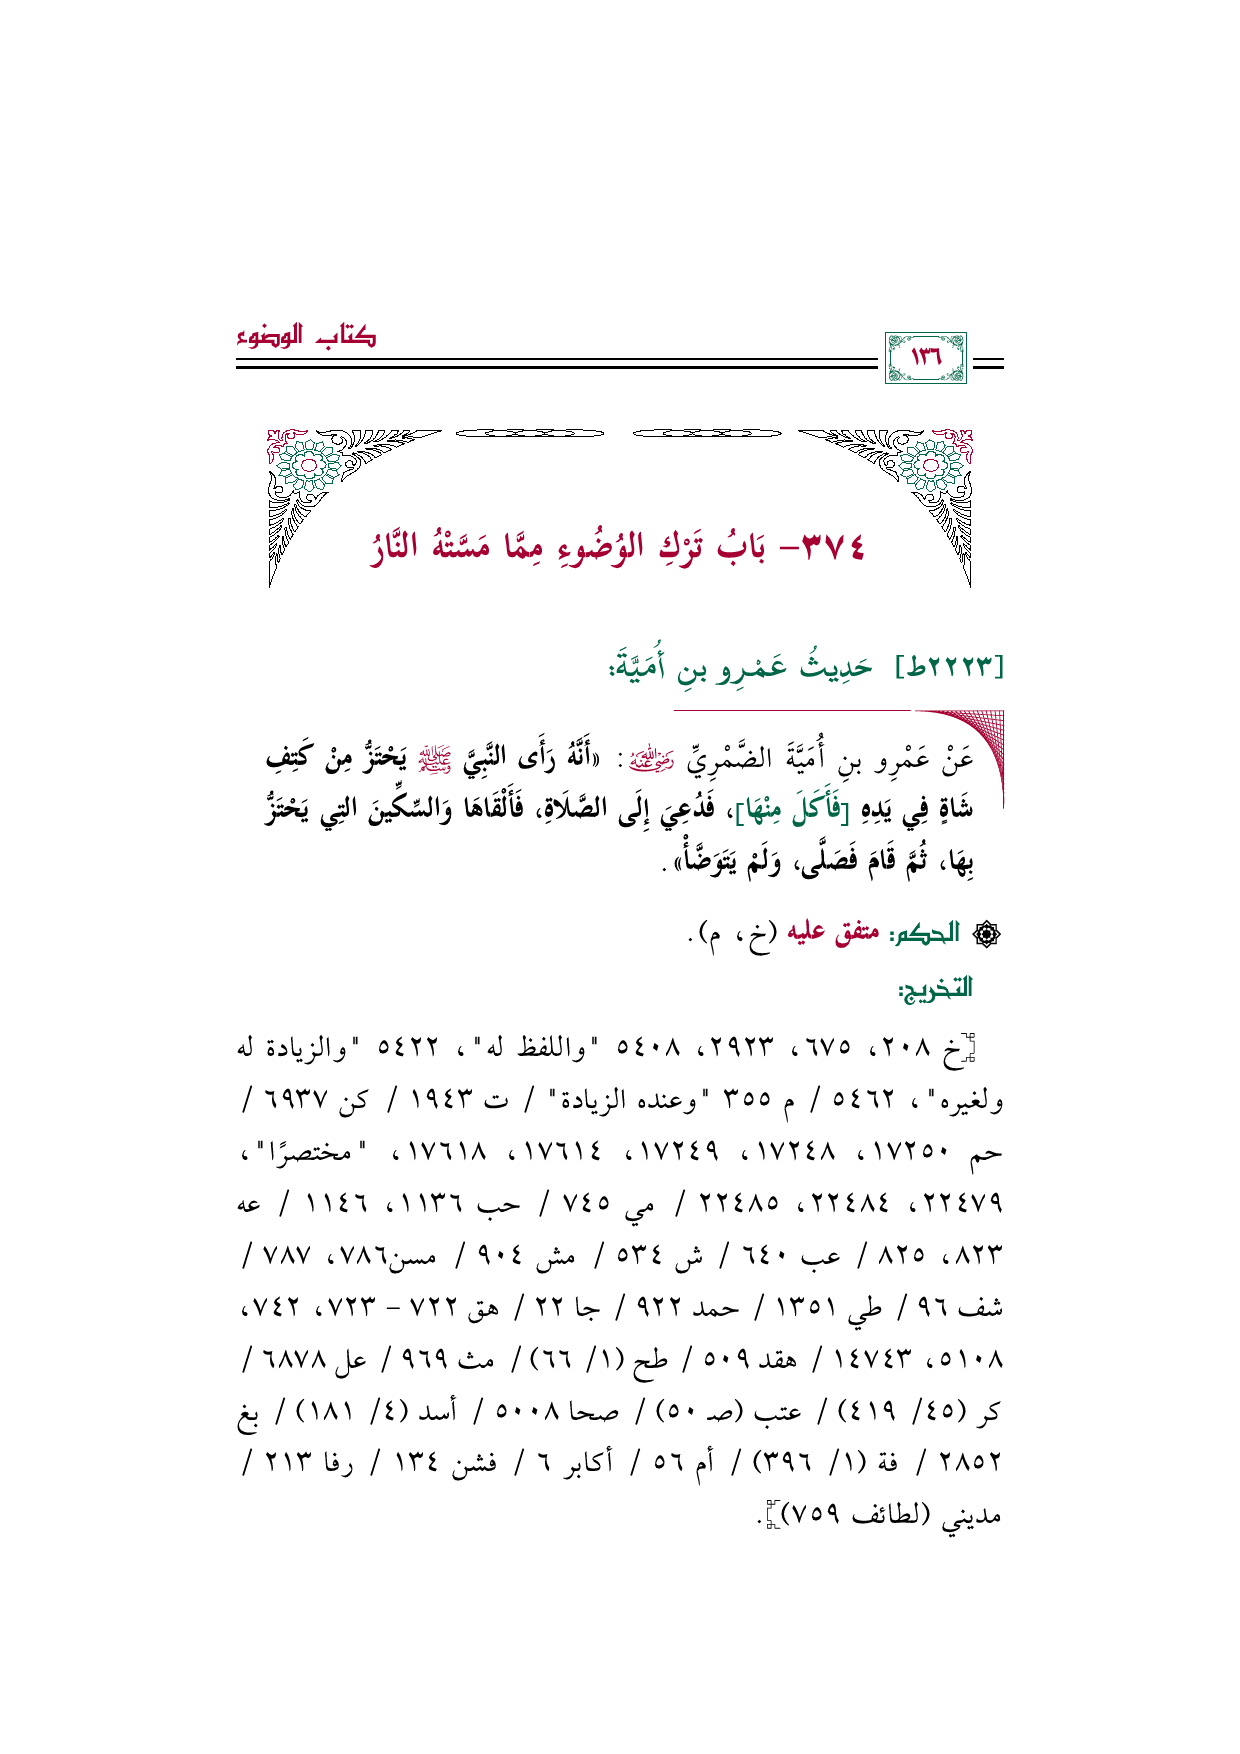 كتاب الوضوء
١٣٦
٣٧٤- بَابُ تَرْكِ الوُضُوءِ مِمَّا مَسَّتْهُ النَّارُ
[٢٢٢٣ط] حَدِيثُ عَمْرِو بنِ أُمَيَّةَ:
عَنْ عَمْرِو بنِ أُمَيَّةَ الضَّمْرِيِّ رضي الله عنه: «أَنَّهُ رَأَى النَّبِيَّ ﷺ يَحْتَزُّ مِنْ كَتِفِ
شَاةٍ فِي يَدِهِ [فَأَكَلَ مِنْهَا]، فَدُعِيَ إِلَى الصَّلَاةِ، فَأَلْقَاهَا وَالسِّكِّينَ التِي يَحْتَزُّ
بِهَا، ثُمَّ قَامَ فَصَلَّى، وَلَمْ يَتَوَضَّأْ».
الحكم: متفق عليه (خ، م).
التخريج:
[خ ٢٠٨، ٦٧٥، ٢٩٢٣، ٥٤٠٨ "واللفظ له"، ٥٤٢٢ "والزيادة له
ولغيره"، ٥٤٦٢ / م ٣٥٥ "وعنده الزيادة" / ت ١٩٤٣ / كن ٦٩٣٧ /
حم ١٧٢٥٠، ١٧٢٤٨، ١٧٢٤٩، ١٧٦١٤، ١٧٦١٨، "مختصرًا"،
٢٢٤٧٩، ٢٢٤٨٤، ٢٢٤٨٥ / مي ٧٤٥ / حب ١١٣٦، ١١٤٦ / عه
٨٢٣، ٨٢٥ / عب ٦٤٠ / ش ٥٣٤ / مش ٩٠٤ / مسن٧٨٦، ٧٨٧ /
شف ٩٦ / طي ١٣٥١ / حمد ٩٢٢ / جا ٢٢ / هق ٧٢٢ - ٧٢٣، ٧٤٢،
٥١٠٨، ١٤٧٤٣ / هقد ٥٠٩ / طح (١/ ٦٦) / مث ٩٦٩ / عل ٦٨٧٨ /
كر (٤٥/ ٤١٩) / عتب (صـ ٥٠) / صحا ٥٠٠٨ / أسد (٤/ ١٨١) / بغ
٢٨٥٢ / فة (١/ ٣٩٦) / أم ٥٦ / أكابر ٦ / فشن ١٣٤ / رفا ٢١٣ /
مديني (لطائف ٧٥٩)].